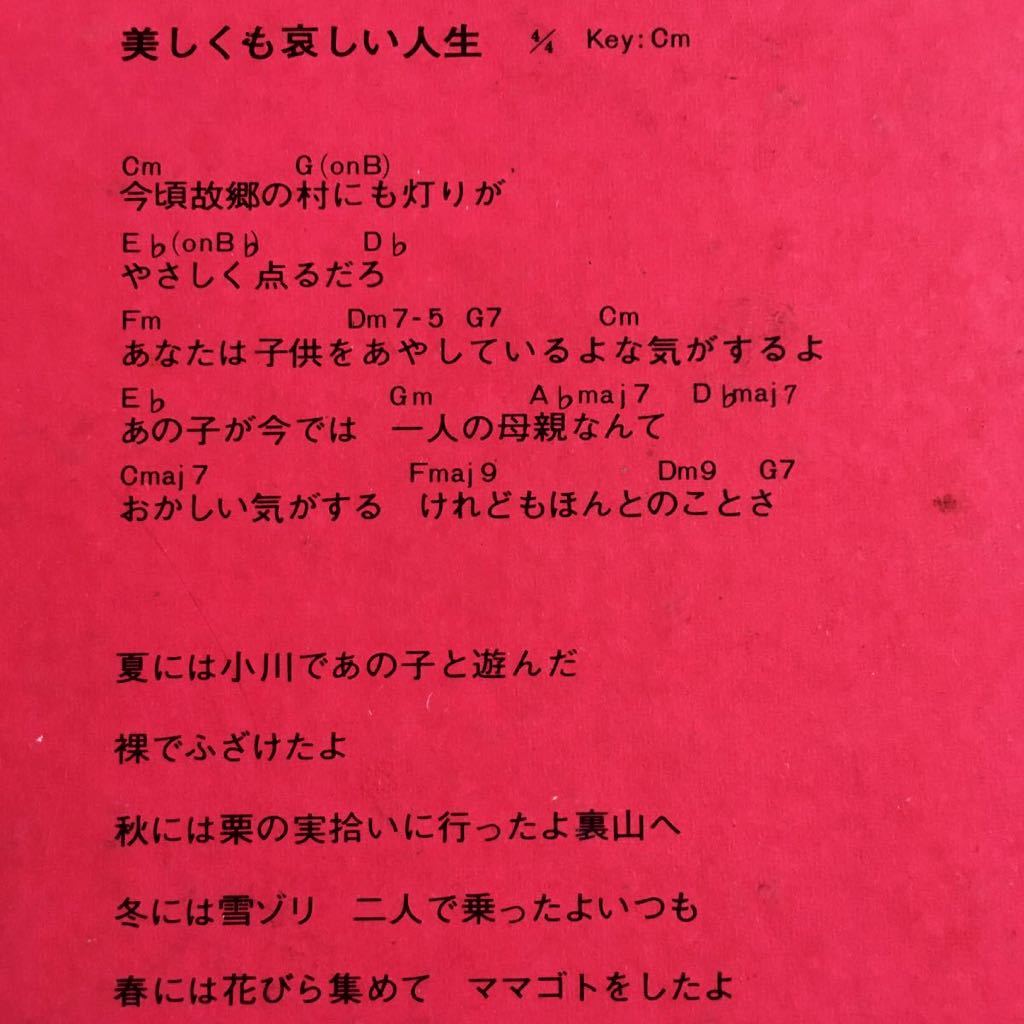 美しくも哀しい人生 4/4 Key:Cm
Cm G(onB)
今頃故郷の村にも灯りが
E♭(onB♭) D♭
やさしく点るだろ
Fm Dm7-5 G7 Cm
あなたは子供をあやしているよな気がするよ
E♭ Gm A♭maj7 D♭maj7
あの子が今では 一人の母親なんて
Cmaj7 Fmaj9 Dm9 G7
おかしい気がする けれどもほんとのことさ
夏には小川であの子と遊んだ
裸でふざけたよ
秋には栗の実拾いに行ったよ裏山へ
冬には雪ゾリ 二人で乗ったよいつも
春には花びら集めて ママゴトをしたよ